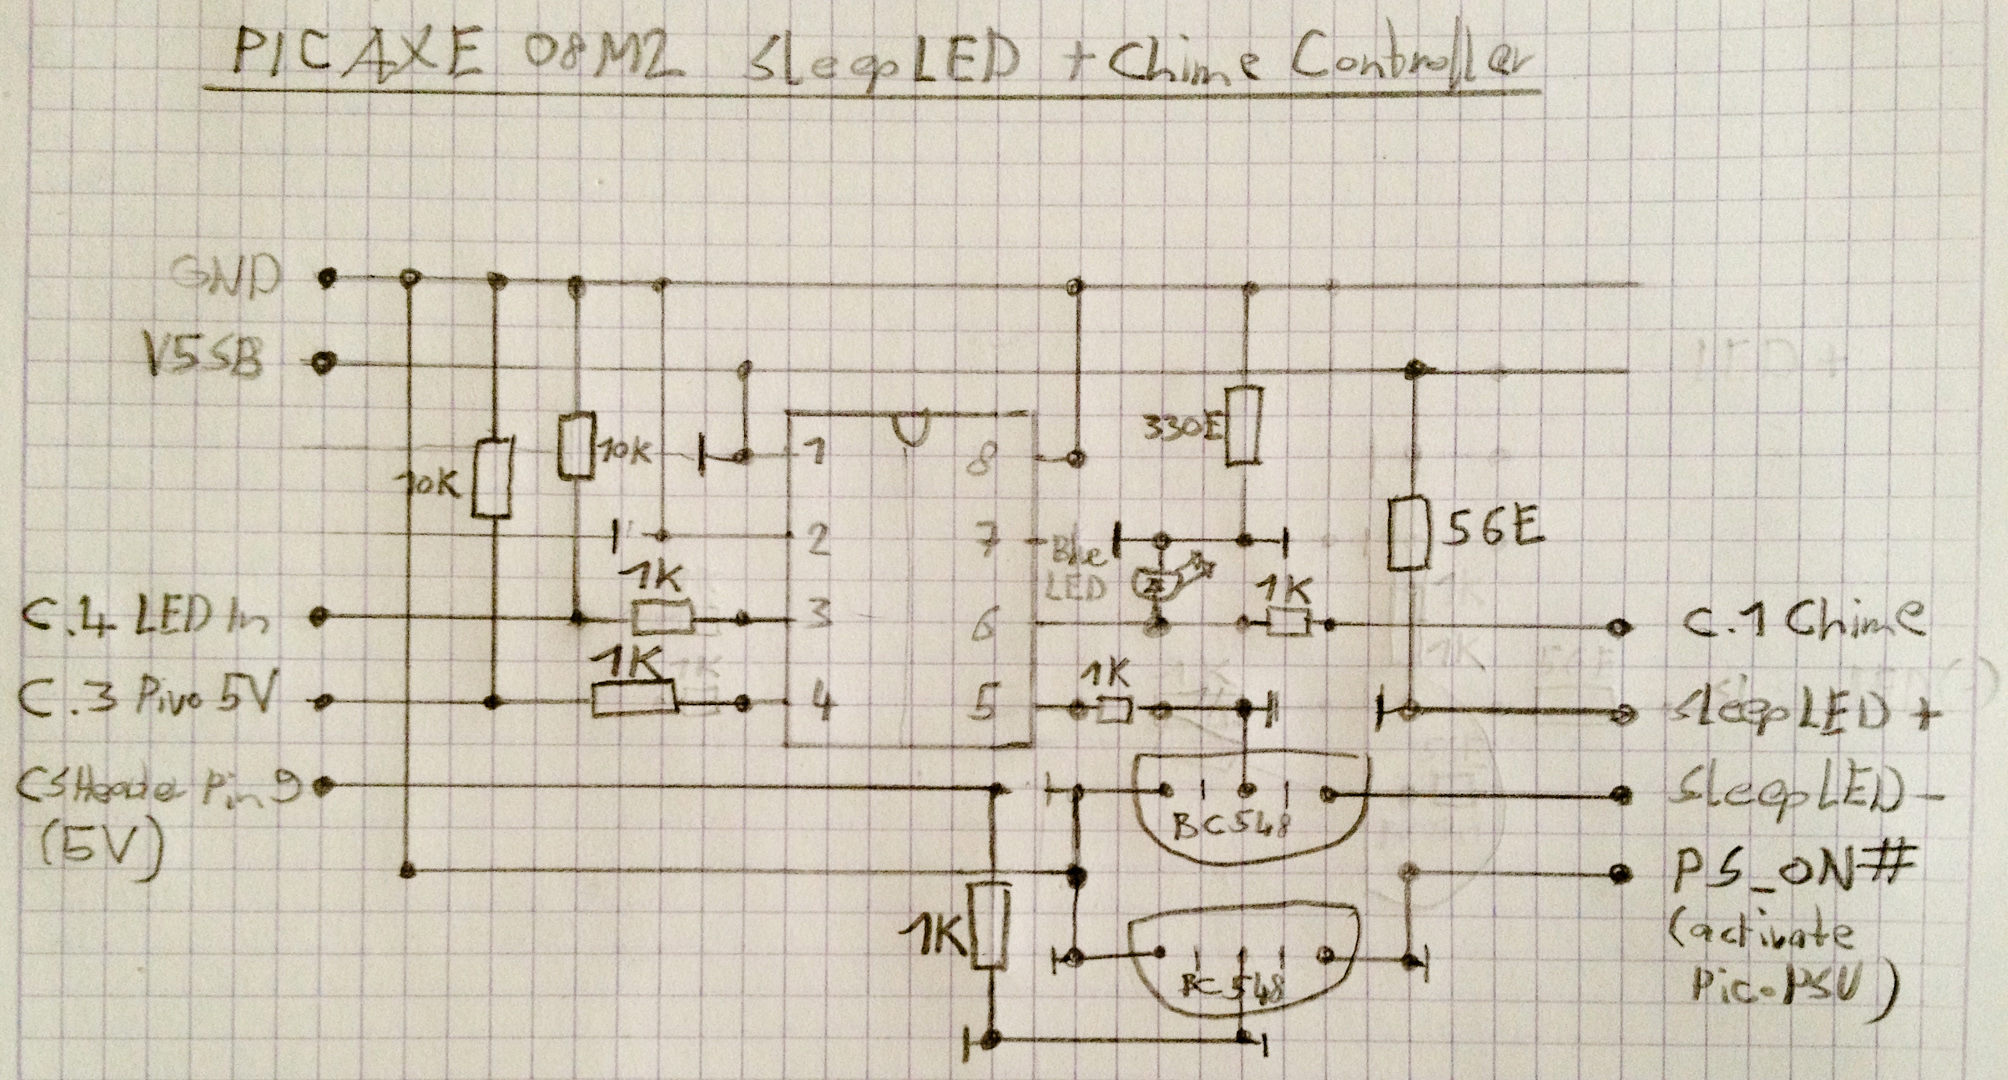 PICAXE 08M2 SleepLED + Chime Controller
GND
V5SB
LED +
10K
10K
1
8
330E
2
7
Blue
LED
56E
1K
1K
C.4 LED In
3
6
C.1 Chime
1K
1K
C.3 Pivo 5V
4
5
SleepLED +
CSHeader Pin 9
(5V)
BC548
SleepLED -
PS_ON#
(activate
PicoPSU)
1K
BC548